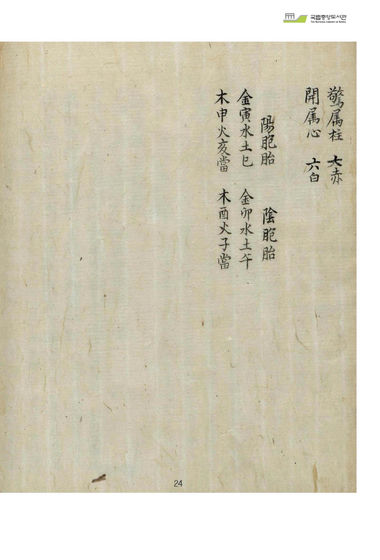 국립중앙도서관
驚属柱 七赤
開属心 六白
陽胞胎 陰胞胎
金寅水土巳 金卯水土午
木申火亥當 木酉火子當
24